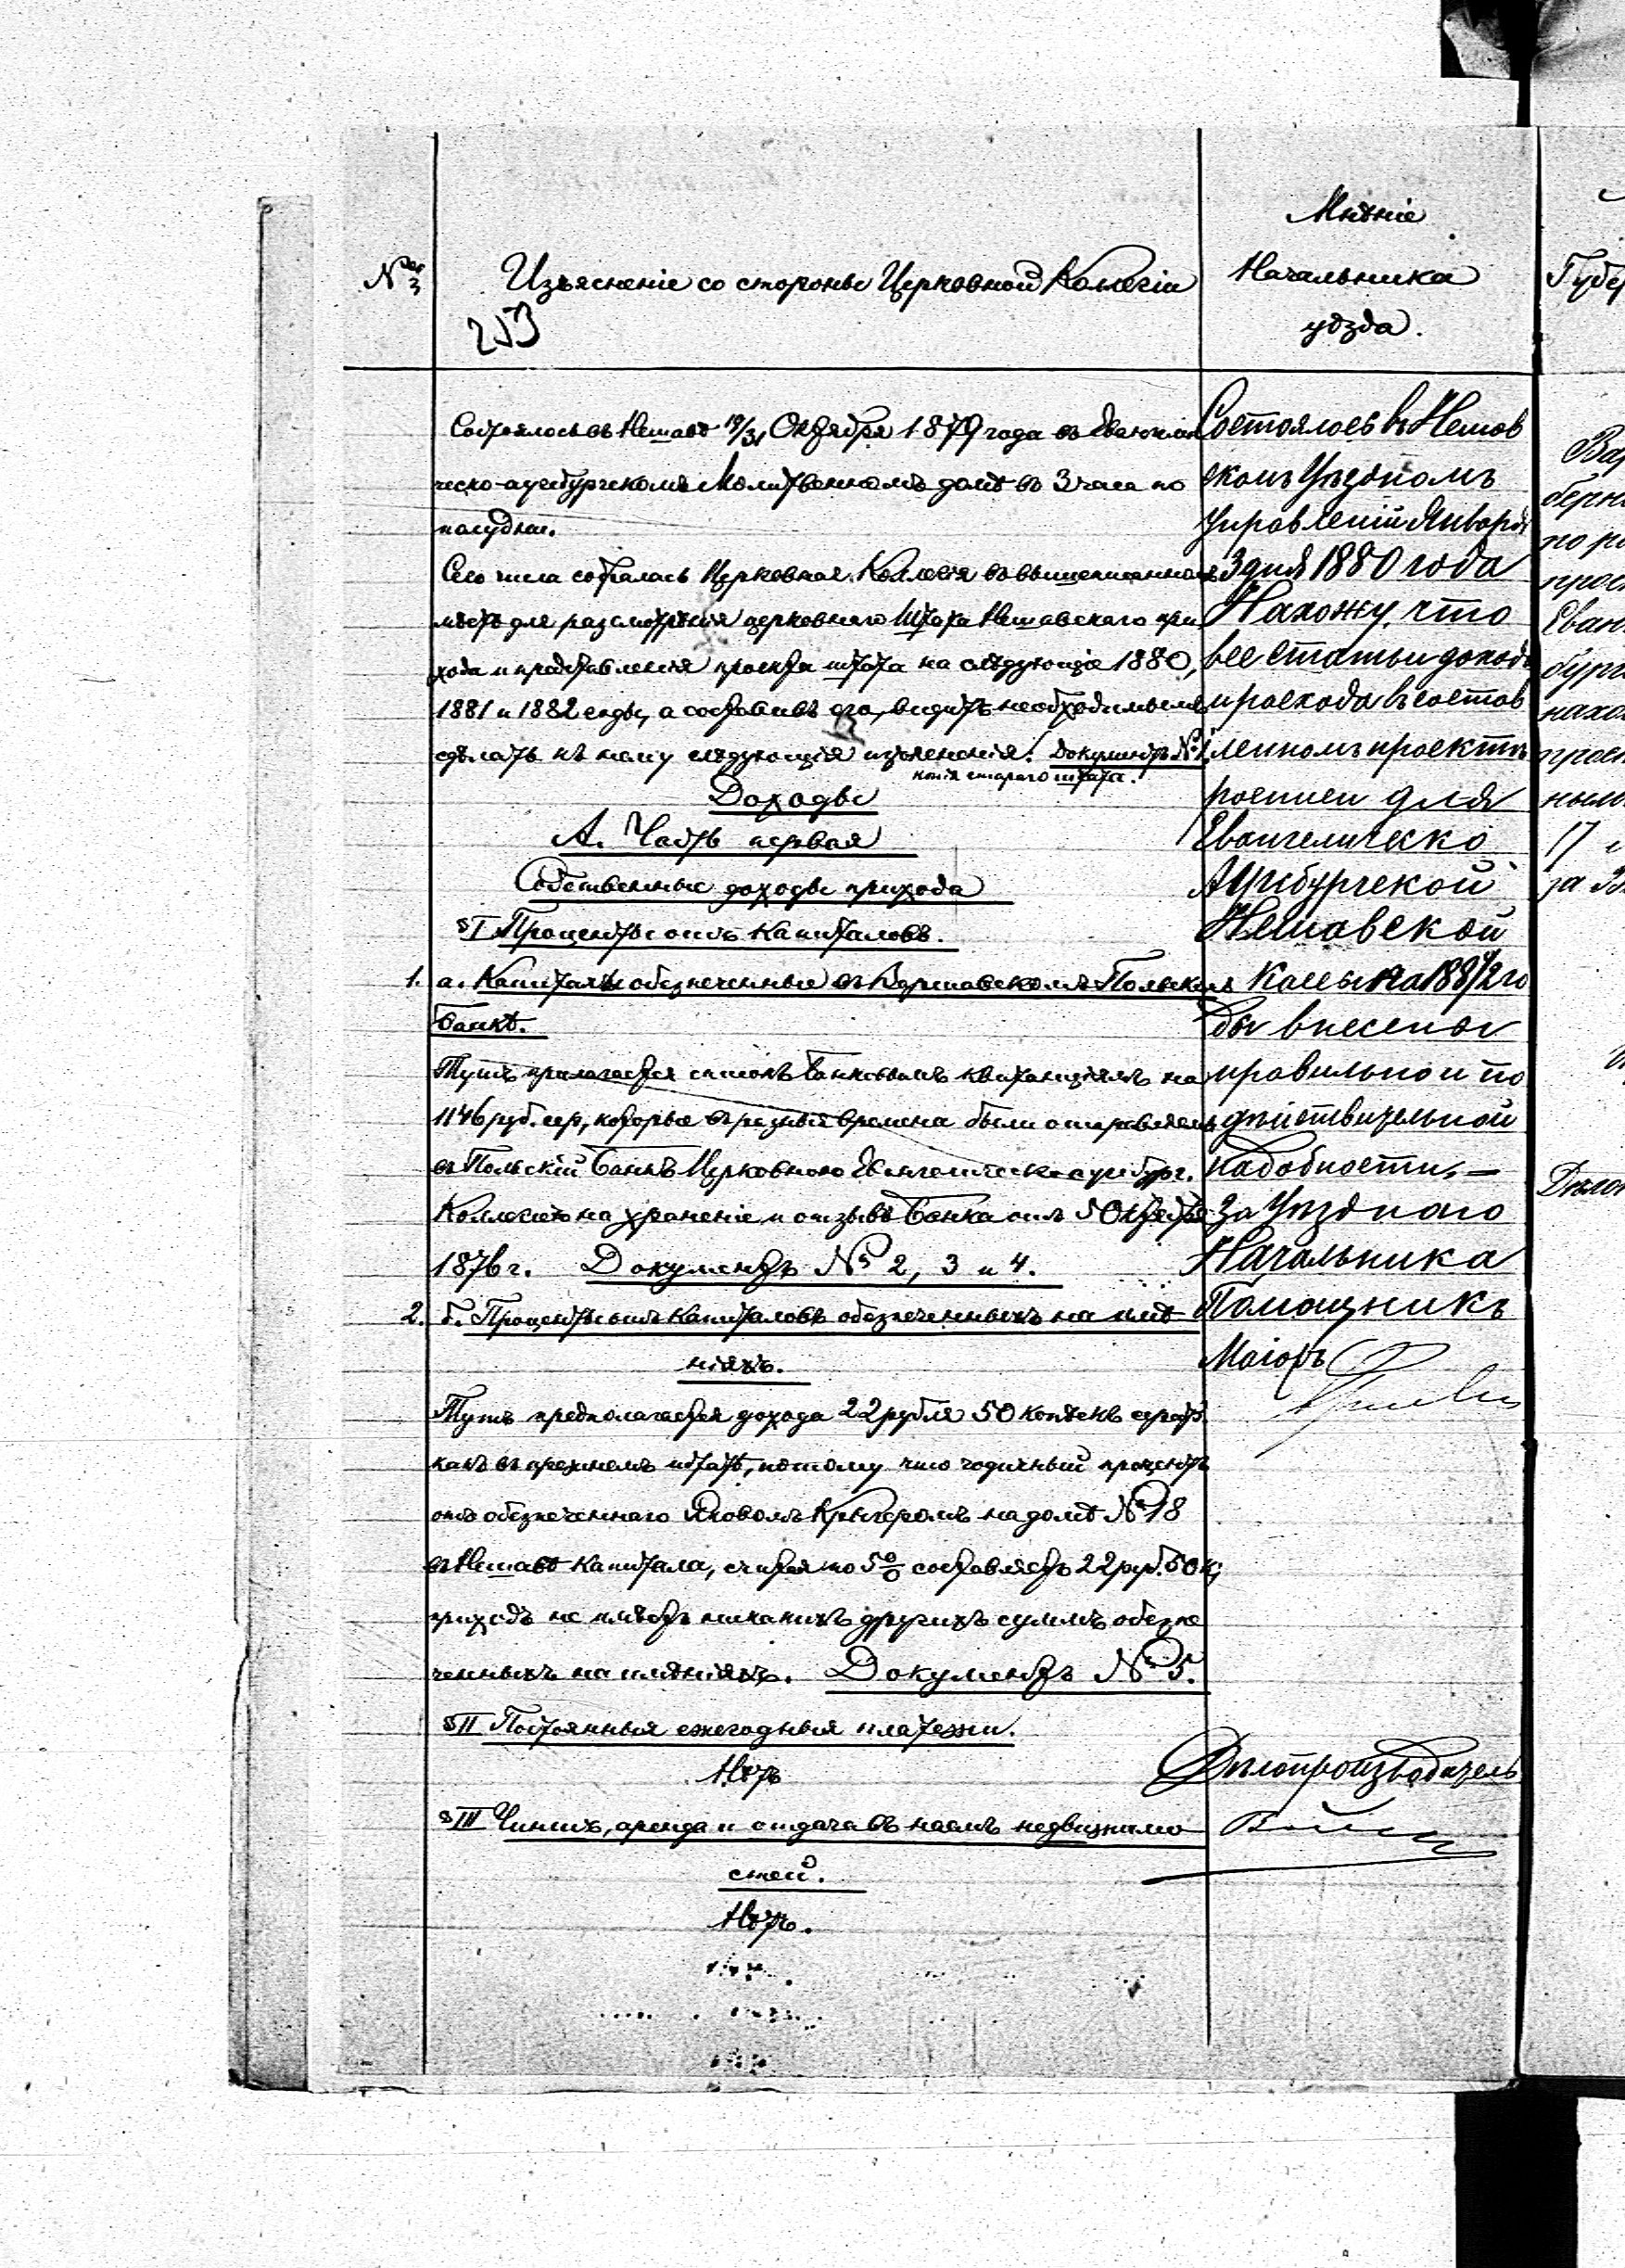 №
Изъясненіе со стороны Церковной Коллегіи
253
Мнѣніе
Начальника
уѣзда.
Губер
Состоялось въ Нешавѣ 19/31 Октября 1879 года въ Евангели
ческо-аугсбургскомъ Молитвенномъ домѣ въ 3 часа по
полудни.
Сего числа собралась Церковная Коллегія въ вышеписанномъ
мѣстѣ для разсмотрѣнія церковнаго Штата Нешавскаго при
хода и представленія проекта штата на слѣдующіе 1880,
1881 и 1882 годы, а составивъ его, видитъ необходимымъ
сдѣлать къ нему слѣдующія изъясненія. Документъ № 1.
копія стараго штата.
Доходы
А. Часть первая
Собственные доходы прихода
§ I Проценты отъ капиталовъ.
1. а. Капиталы обезпеченные въ Варшавскомъ Польскомъ
Банкѣ.
Тутъ прилагается списокъ Банковымъ квитанціямъ на
1146 руб. сер, которые въ разныя времена были отправлены
въ Польскій Банкъ Церковною Евангелическо-аугсбург.
Коллегіею на храненіе и отзывъ Банка отъ 5 Октября
1876 г. Документъ № 2, 3 и 4.
2. б. Проценты отъ капиталовъ обезпеченныхъ на имѣ
ніяхъ.
Тутъ предполагается дохода 22 рубля 50 копѣекъ
какъ въ прежнемъ штатѣ, потому что годичный процентъ
отъ обезпеченнаго Яковомъ Кригеромъ на домѣ № 18
въ Нешавѣ капитала, считая по 5% составляетъ 22 руб. 50 к;
приходъ не имѣетъ никакихъ другихъ суммъ обезпе
ченныхъ на имѣніяхъ. Документъ № 5.
§ II Постоянныя ежегодныя платежи.
Нѣтъ
§ III Чиншъ, аренда и отдача въ наемъ недвижимо
стей.
Нѣтъ.
Состоялось въ Нешав
скомъ Уѣздномъ
Управленіи Января
3 дня 1880 года
Нахожу, что
все статьи дохода
и расхода въ состав
ленномъ проектѣ
росписи для
Евангелическо
Аугсбургской
Нешавской
кассы на 1880/2 го
ды внесены
правильно и по
дѣйствительной
надобности,—
За Уѣзднаго
Начальника
Помощникъ
Маіоръ
Дѣлопроизводитель
Вар
берн
по ра
прое
Еван
бург
нахо
прое
ным
17
за
Дѣло